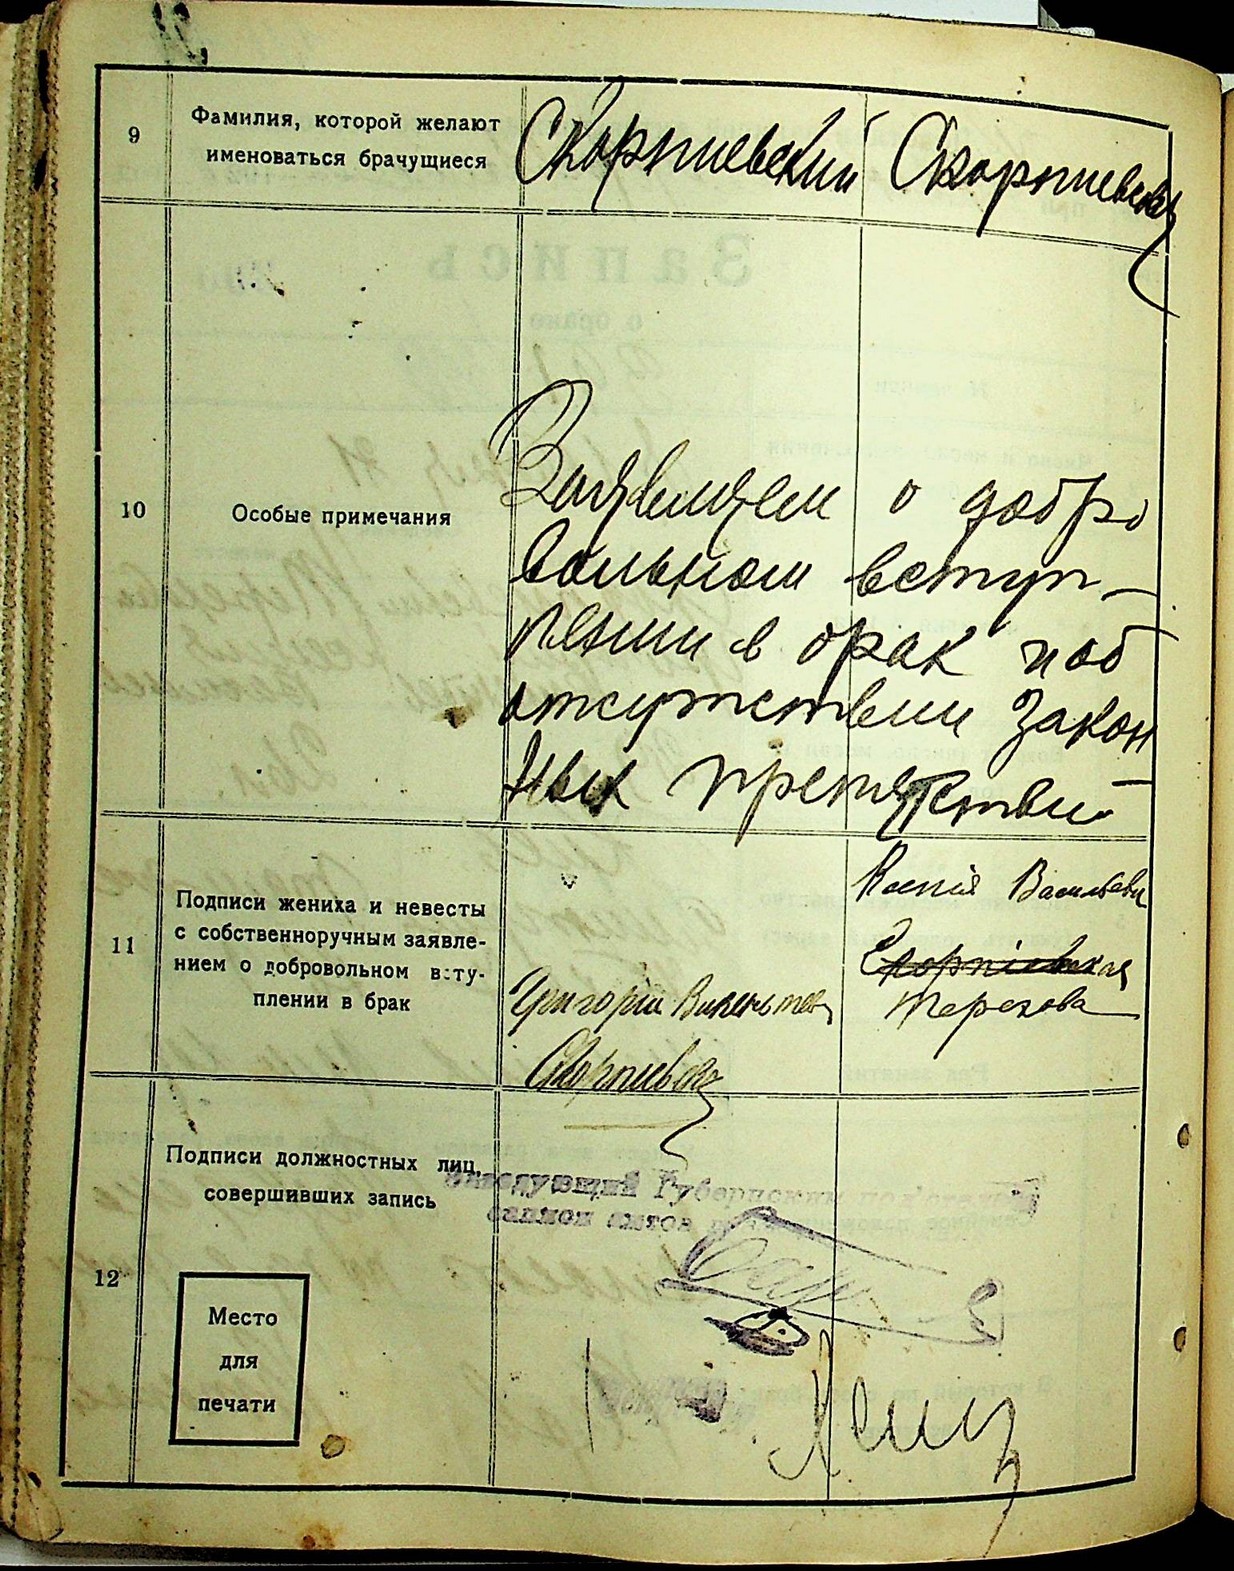 9
Фамилия, которой желают
именоваться брачущиеся
Скорпиевский Скорпиевская
10
Особые примечания
Заявляем о добро
вольном вступ-
лении в брак и об
отсутствии закон
ных препятствий
11
Подписи жениха и невесты
с собственноручным заявле-
нием о добровольном всту-
плении в брак
Ксенія Васильевн
Скорпіевская
Терехова
Григорій Викентьев
Скорпиевский
12
Подписи должностных лиц,
совершивших запись
Заведующий Губернским подотделом
записи актов
Место
для
печати